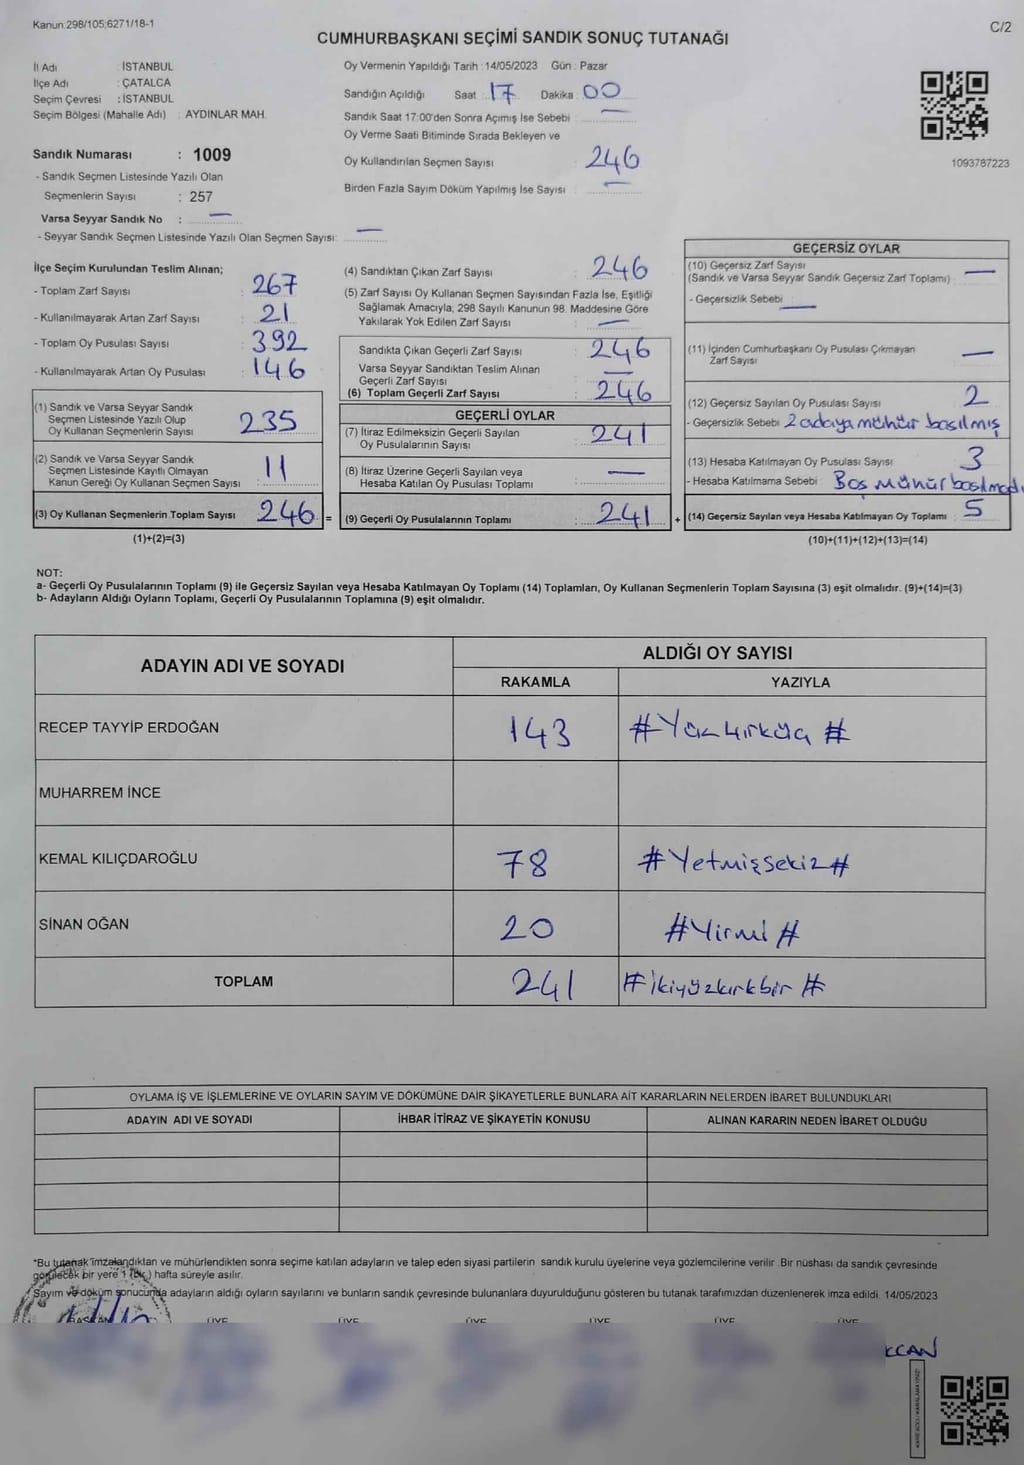 Kanun:298/105;6271/18-1
C/2
CUMHURBAŞKANI SEÇİMİ SANDIK SONUÇ TUTANAĞI
İl Adı : İSTANBUL
İlçe Adı : ÇATALCA
Seçim Çevresi : İSTANBUL
Seçim Bölgesi (Mahalle Adı) : AYDINLAR MAH.
Sandık Numarası : 1009
- Sandık Seçmen Listesinde Yazılı Olan
Seçmenlerin Sayısı : 257
Varsa Seyyar Sandık No : —
- Seyyar Sandık Seçmen Listesinde Yazılı Olan Seçmen Sayısı: —
Oy Vermenin Yapıldığı Tarih :14/05/2023 Gün : Pazar
Sandığın Açıldığı Saat : 17 Dakika : 00
Sandık Saat 17:00'den Sonra Açımış İse Sebebi : —
Oy Verme Saati Bitiminde Sırada Bekleyen ve
Oy Kullandırılan Seçmen Sayısı : 246
Birden Fazla Sayım Döküm Yapılmış İse Sayısı : —
1093787223
İlçe Seçim Kurulundan Teslim Alınan;
- Toplam Zarf Sayısı : 267
- Kullanılmayarak Artan Zarf Sayısı : 21
- Toplam Oy Pusulası Sayısı : 392
- Kullanılmayarak Artan Oy Pusulası : 146
(1) Sandık ve Varsa Seyyar Sandık
Seçmen Listesinde Yazılı Olup
Oy Kullanan Seçmenlerin Sayısı : 235
(2) Sandık ve Varsa Seyyar Sandık
Seçmen Listesinde Kayıtlı Olmayan
Kanun Gereği Oy Kullanan Seçmen Sayısı : 11
(3) Oy Kullanan Seçmenlerin Toplam Sayısı : 246 =
(1)+(2)=(3)
(4) Sandıktan Çıkan Zarf Sayısı : 246
(5) Zarf Sayısı Oy Kullanan Seçmen Sayısından Fazla İse, Eşitliği
Sağlamak Amacıyla, 298 Sayılı Kanunun 98. Maddesine Göre
Yakılarak Yok Edilen Zarf Sayısı : —
Sandıkta Çıkan Geçerli Zarf Sayısı : 246
Varsa Seyyar Sandıktan Teslim Alınan
Geçerli Zarf Sayısı : —
(6) Toplam Geçerli Zarf Sayısı : 246
GEÇERLİ OYLAR
(7) İtiraz Edilmeksizin Geçerli Sayılan
Oy Pusulalarının Sayısı : 241
(8) İtiraz Üzerine Geçerli Sayılan veya
Hesaba Katılan Oy Pusulası Toplamı : —
(9) Geçerli Oy Pusulalarının Toplamı : 241 +
GEÇERSİZ OYLAR
(10) Geçersiz Zarf Sayısı
(Sandık ve Varsa Seyyar Sandık Geçersiz Zarf Toplamı) : —
- Geçersizlik Sebebi : —
(11) İçinden Cumhurbaşkanı Oy Pusulası Çıkmayan
Zarf Sayısı : —
(12) Geçersiz Sayılan Oy Pusulası Sayısı : 2
- Geçersizlik Sebebi : 2 adaya mühür basılmış
(13) Hesaba Katılmayan Oy Pusulası Sayısı : 3
- Hesaba Katılmama Sebebi : Boş mühür basılmadı
(14) Geçersiz Sayılan veya Hesaba Katılmayan Oy Toplamı : 5
(10)+(11)+(12)+(13)=(14)
NOT:
a- Geçerli Oy Pusulalarının Toplamı (9) ile Geçersiz Sayılan veya Hesaba Katılmayan Oy Toplamı (14) Toplamları, Oy Kullanan Seçmenlerin Toplam Sayısına (3) eşit olmalıdır. (9)+(14)=(3)
b- Adayların Aldığı Oyların Toplamı, Geçerli Oy Pusulalarının Toplamına (9) eşit olmalıdır.
ADAYIN ADI VE SOYADI
ALDIĞI OY SAYISI
RAKAMLA YAZIYLA
RECEP TAYYİP ERDOĞAN 143 #Yüzkırküç #
MUHARREM İNCE
KEMAL KILIÇDAROĞLU 78 #Yetmişsekiz#
SİNAN OĞAN 20 #Yirmi #
TOPLAM 241 #ikiyüzkırkbir #
OYLAMA İŞ VE İŞLEMLERİNE VE OYLARIN SAYIM VE DÖKÜMÜNE DAİR ŞİKAYETLERLE BUNLARA AİT KARARLARIN NELERDEN İBARET BULUNDUKLARI
ADAYIN ADI VE SOYADI İHBAR İTİRAZ VE ŞİKAYETİN KONUSU ALINAN KARARIN NEDEN İBARET OLDUĞU
*Bu tutanak imzalandıktan ve mühürlendikten sonra seçime katılan adayların ve talep eden siyasi partilerin sandık kurulu üyelerine veya gözlemcilerine verilir. Bir nüshası da sandık çevresinde
görülecek bir yere 1 (bir) hafta süreyle asılır.
Sayım ve döküm sonucunda adayların aldığı oyların sayılarını ve bunların sandık çevresinde bulunanlara duyurulduğunu gösteren bu tutanak tarafımızdan düzenlenerek imza edildi. 14/05/2023
BAŞKAN ÜYE ÜYE ÜYE ÜYE ÜYE ÜYE